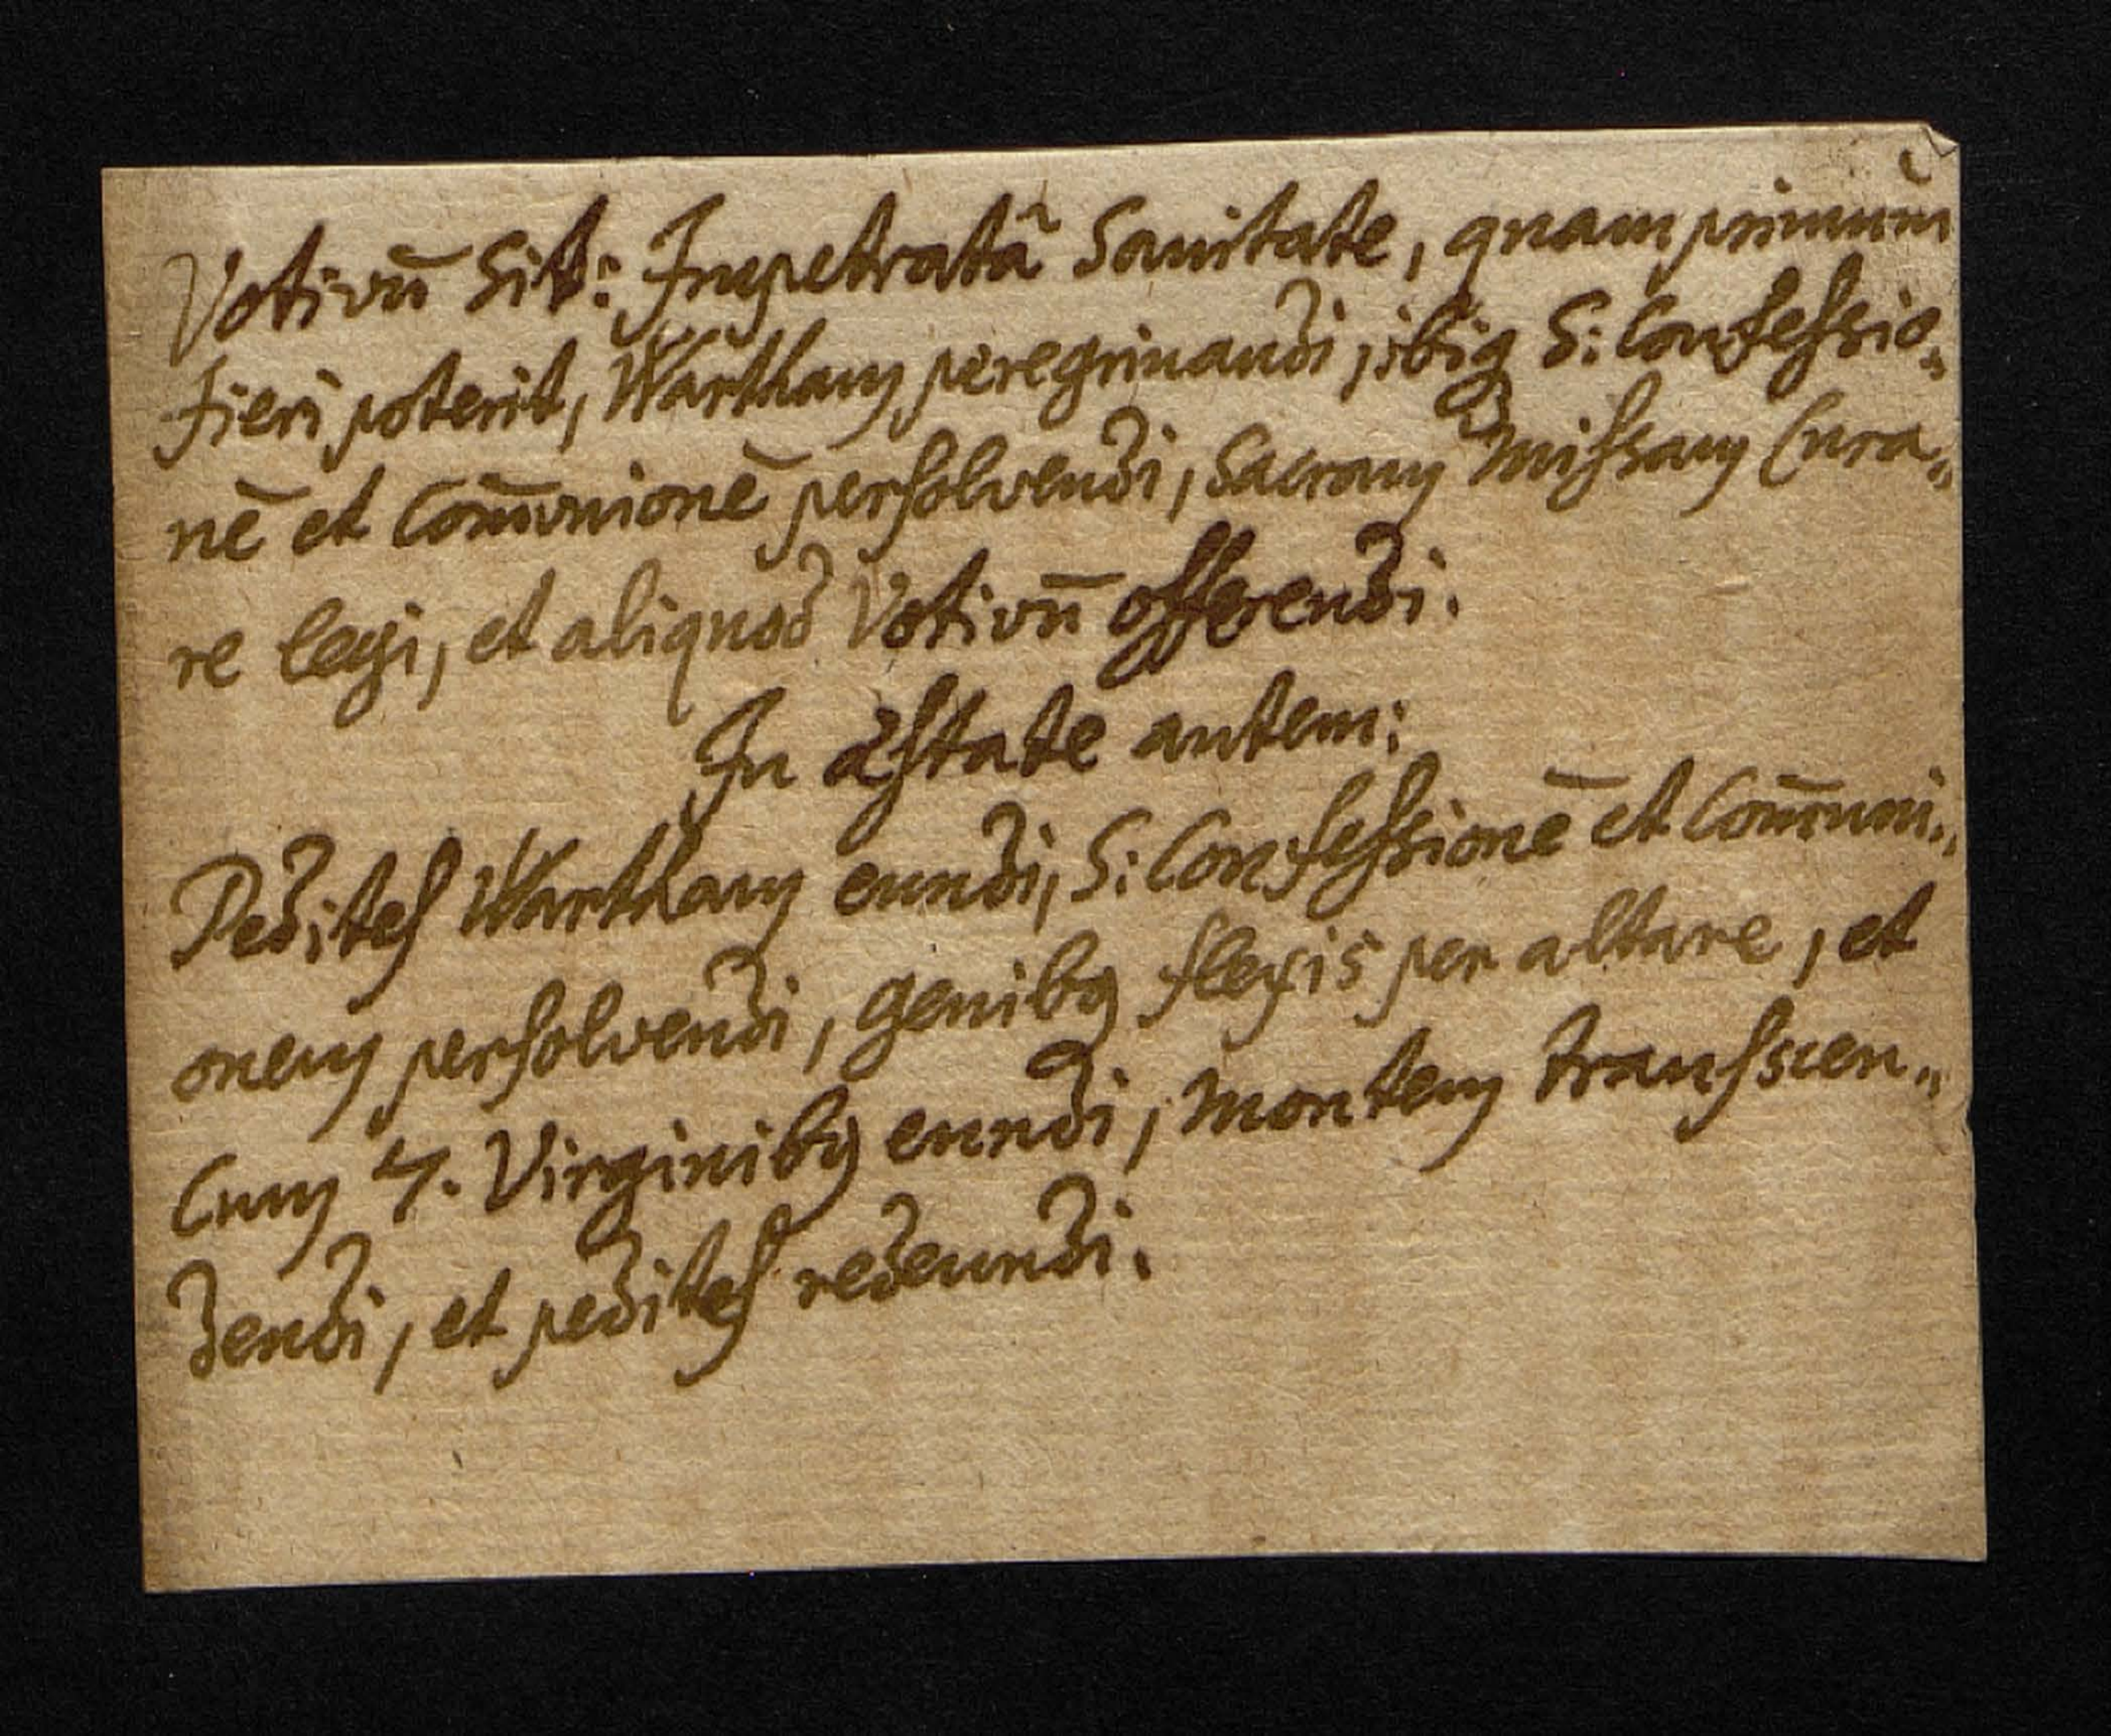 Votivū Sit: Impetratâ Sanitate, quam primum
fieri poterit, Wartham peregrinandi, ibiq S: Confessio„
nē et Com̄unionē persolvendi, Sacram Missam Cura„
re legi, et aliquod Votivū offerendi.
In æstate autem:
Pedites Wartham eundi, S: Confessionē et Com̄uni„
onem persolvendi, genibꝰ flexis per altare, et
Cum 4. Virginibꝰ eundi, montem transscen„
dendi, et pedites redeundi.